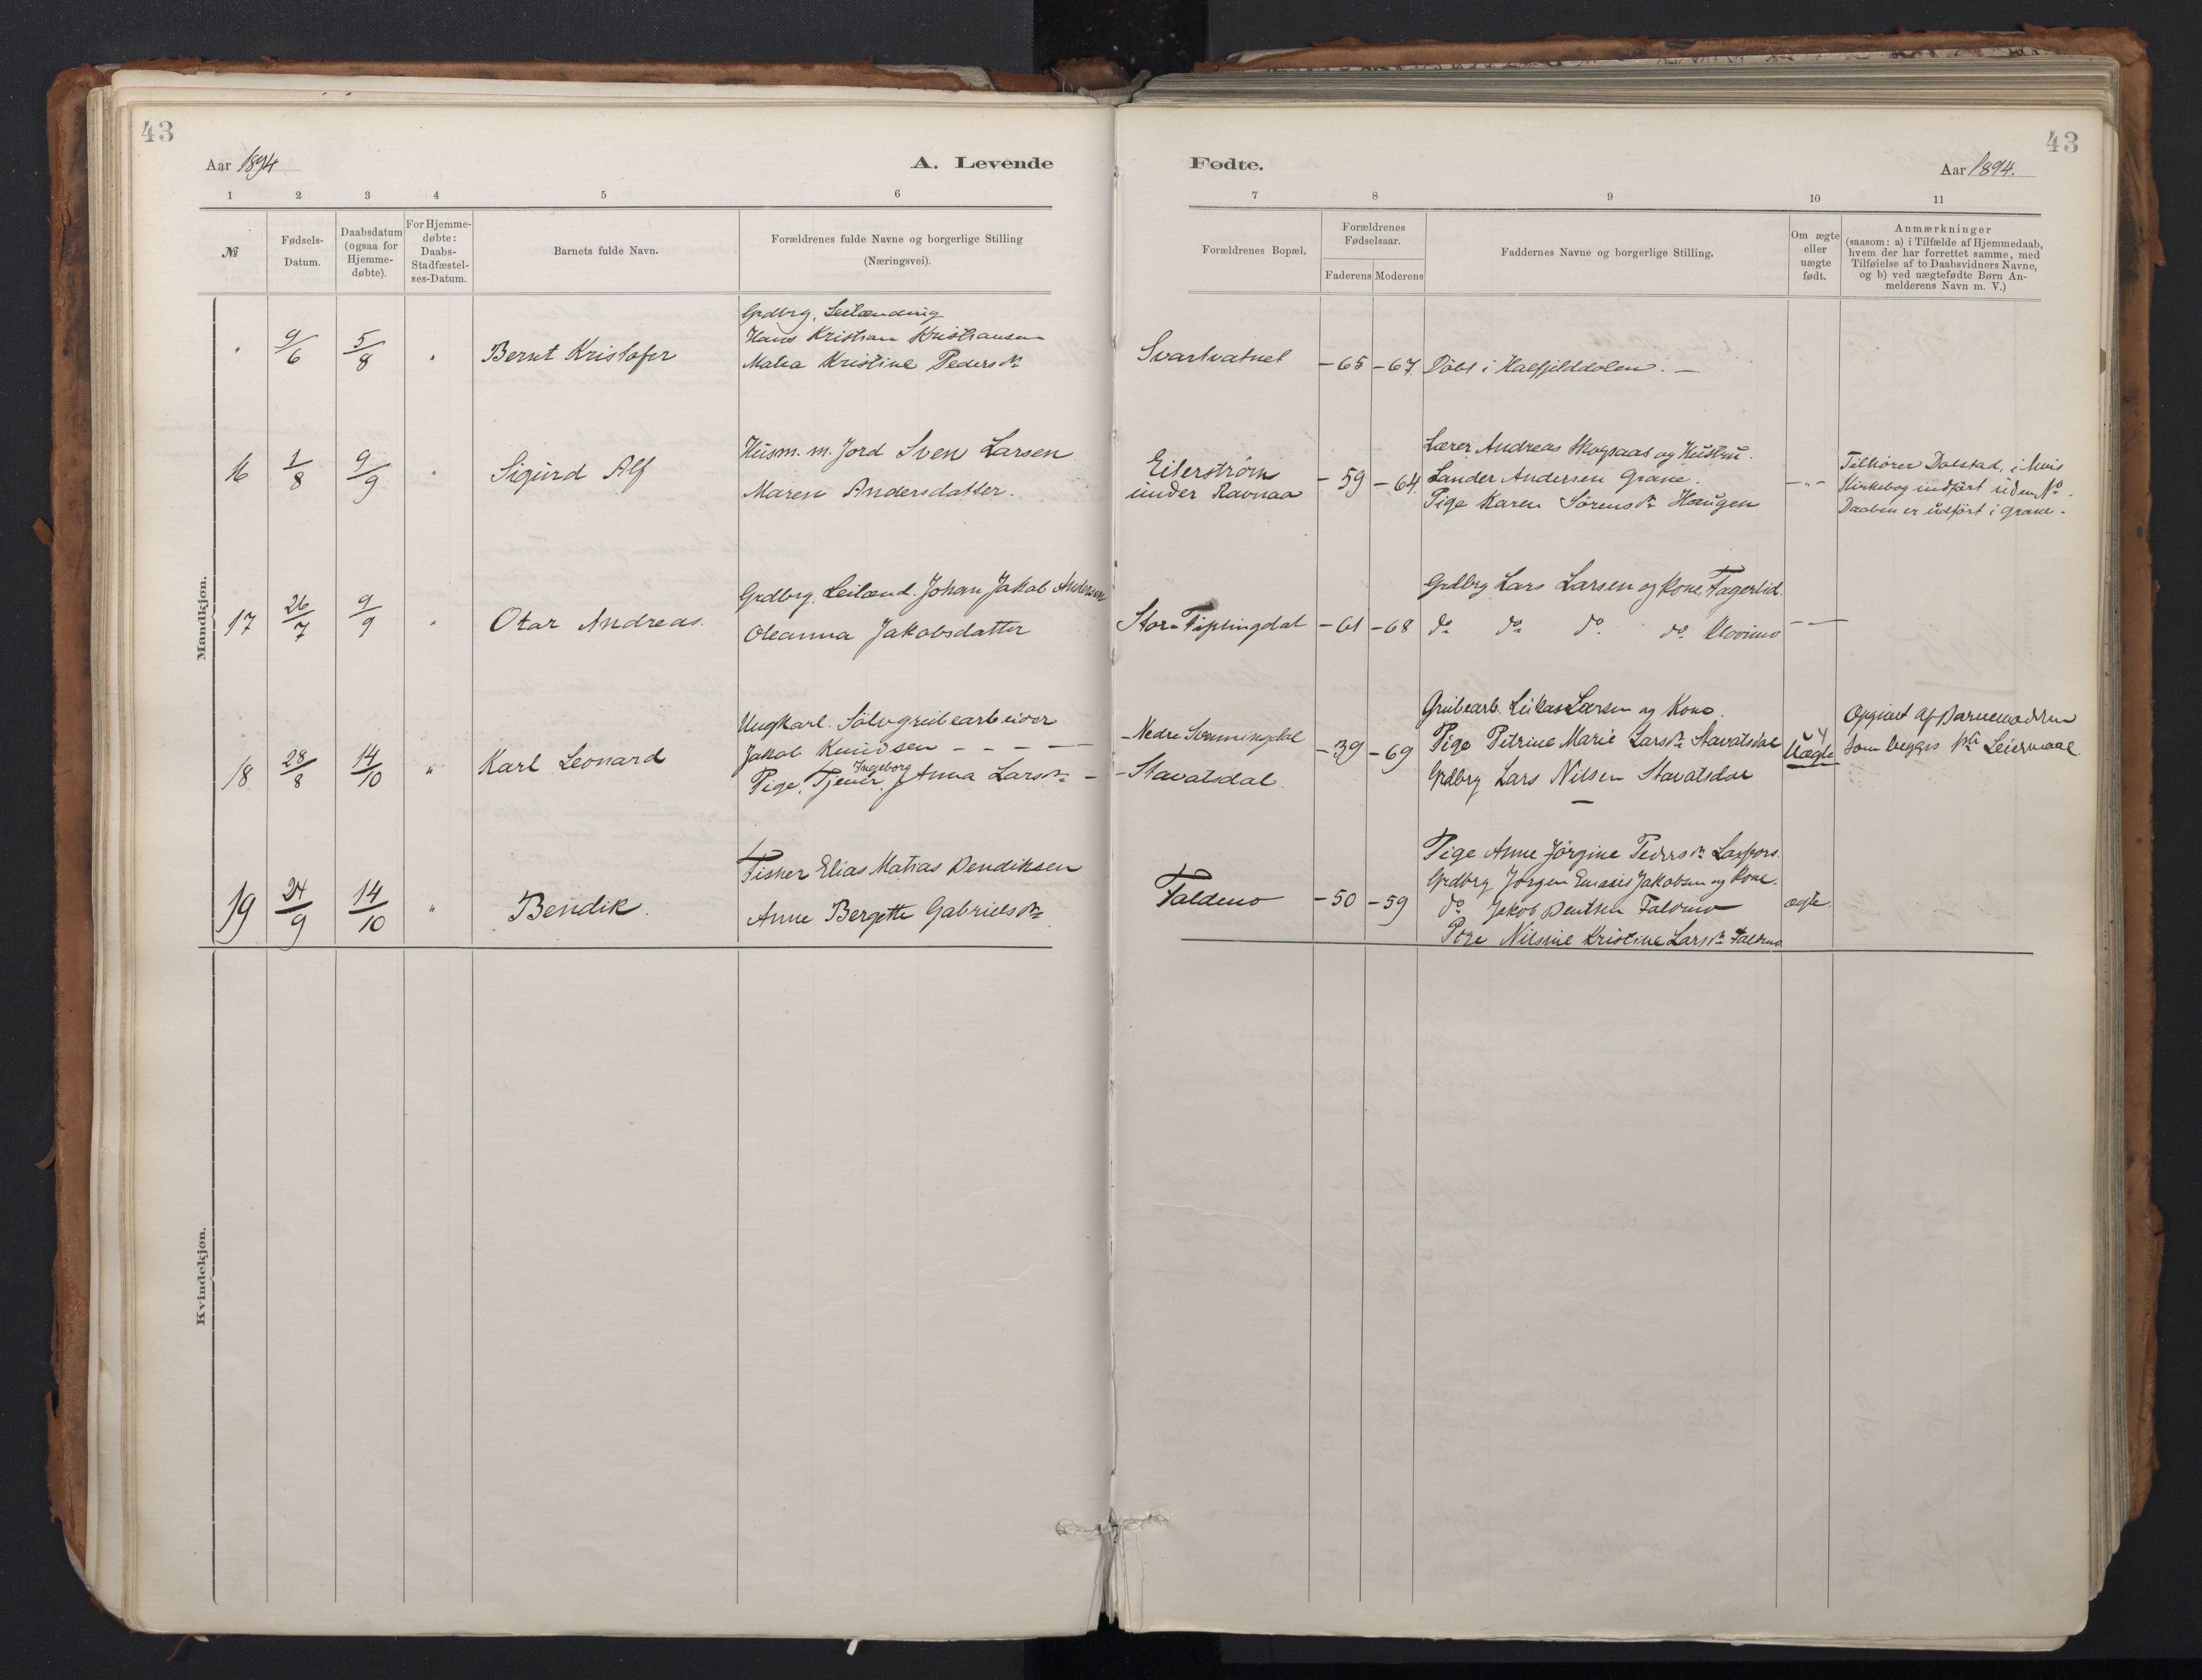 43
43
Aar 1894
A. Levende
Fødte.
Aar 1894.
1 2 3 4 5 6 7 8 9 10 11
№
Fødsels-
Datum.
Daabsdatum
(ogsaa for
Hjemme-
døbte).
For Hjemme-
døbte:
Daabs-
Stadfæstel-
ses-Datum.
Barnets fulde Navn.
Forældrenes fulde Navne og borgerlige Stilling
(Næringsvei).
Forældrenes Bopæl.
Forældrenes
Fødselsaar.
Faderens Moderens
Faddernes Navne og borgerlige Stilling.
Om ægte
eller
uægte
født.
Anmærkninger
(saasom: a) i Tilfælde af Hjemmedaab,
hvem der har forrettet samme, med
Tilføielse af to Daabsvidners Navne,
og b) ved uægtefødte Børn An-
melderens Navn m. V.)
Mandkjøn.
" 9/6 5/8 " Bernt Kristofer
Grdbrg. Leilænding
Hans Kristian Kristiansen
Matea Kristine Pedersdr
Svartvatnet
-65 -67
Döbt i Hatfjelddalen. -
16 1/8 9/9 " Sigurd Alf
Husm. m. Jord Sven Larsen
Maren Andersdatter.
Eiterstrøm
under Ravnaa
-59 -64
Lærer Andreas Skogsaas og Hustru.
Lander Andersen Grane.
Pige Karen Sörensdr Haugen
-"-
Tilhörer Dolstad, i hvis
Kirkebog indfört uden No.
Daaben er udfört i Grane.
17 26/7 9/9 " Otar Andreas.
Grdbrg. Leilænd. Johan Jakob Andersen
Oleanna Jakobsdatter
Stor-Tiplingdal
-61 -68
Grdbrg Lars Larsen og Kone, Fagerlid.
do do do do Klovimo
- -
18 28/8 14/10 " Karl Leonard
Ungkarl. Sölvgrubearbeider
Jakob Knudsen - - - -
Pige, Tjener, Ingeborg Anna Larsdr -
-Nedre Svenningdal
-Stavatsdal.
-39 -69
Grubearb. Lukas Larsen og Kone.
Pige Petrine Marie Larsdr Stavatsdal
Grdbrg Lars Nilsen Stavatsdal
-
Uægte
Opgivet af Barnemodren
som begges Leiermaal
19 24/9 14/10 " Bendik.
Fisker Elias Matias Bendiksen
Anne Bergette Gabrielsdr
Faldmo
-50 -59
Pige Anne Jörgine Pedersdr Laxfors.
Grdbrg Jörgen Jakobsen og Kone.
do Jakob Bentsen Faldmo
Pige Nilsine Kristine Larsdr Faldmo
ægte.
Kvindekjøn.